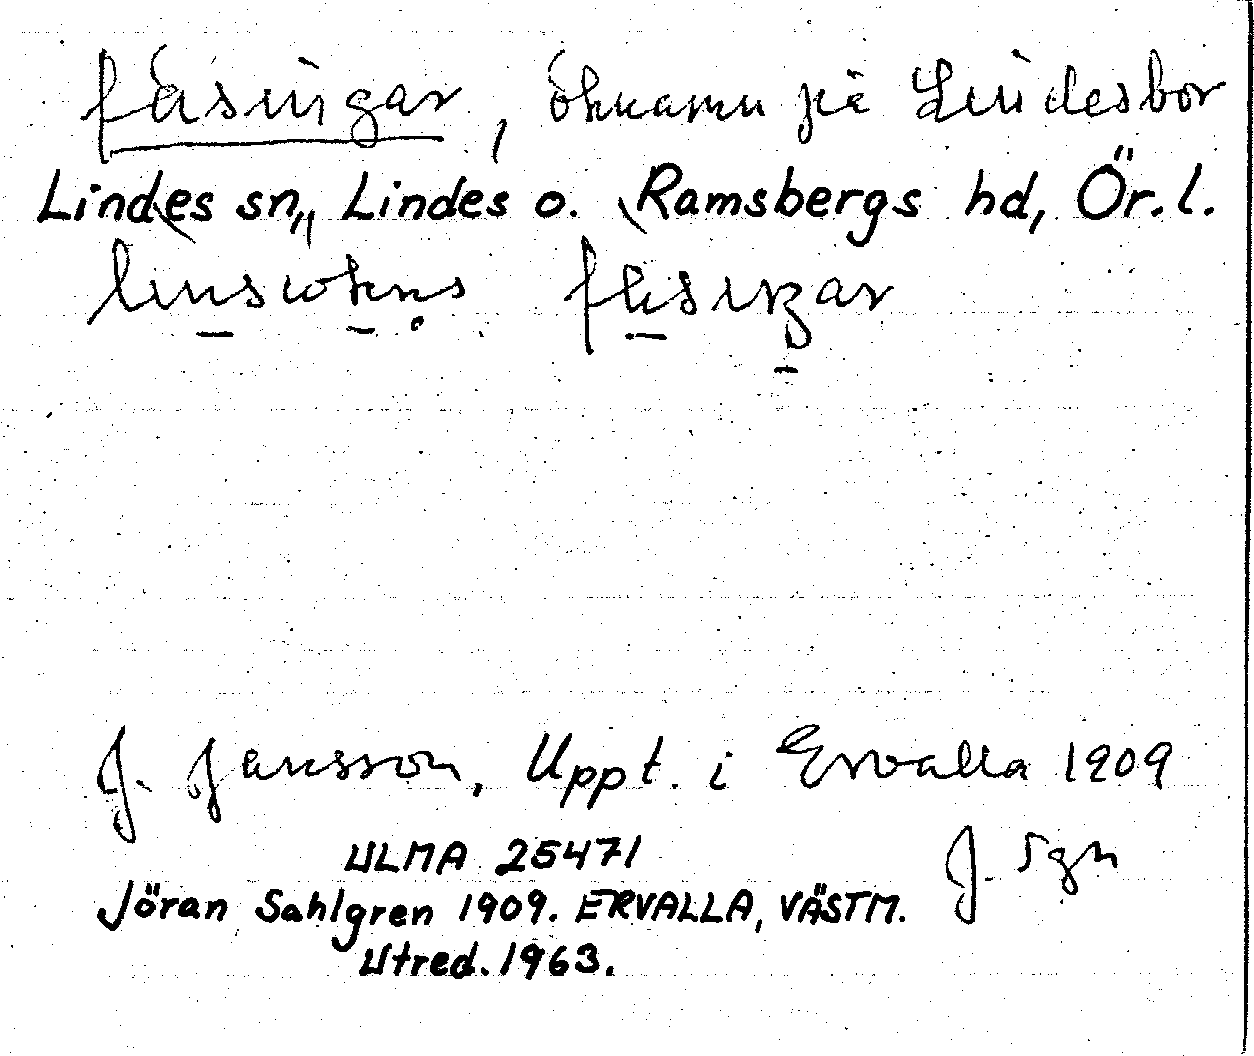 fåsingar, öknamn på Lindesbor
Lindes sn, Lindes o. Ramsbergs hd, Ör.l.
J. Jansson, Uppt. i Ervalla 1909
J. Sgn
ULMA 25471
Jöran Sahlgren 1909. ERVALLA, VÄSTM.
Utred. 1963.